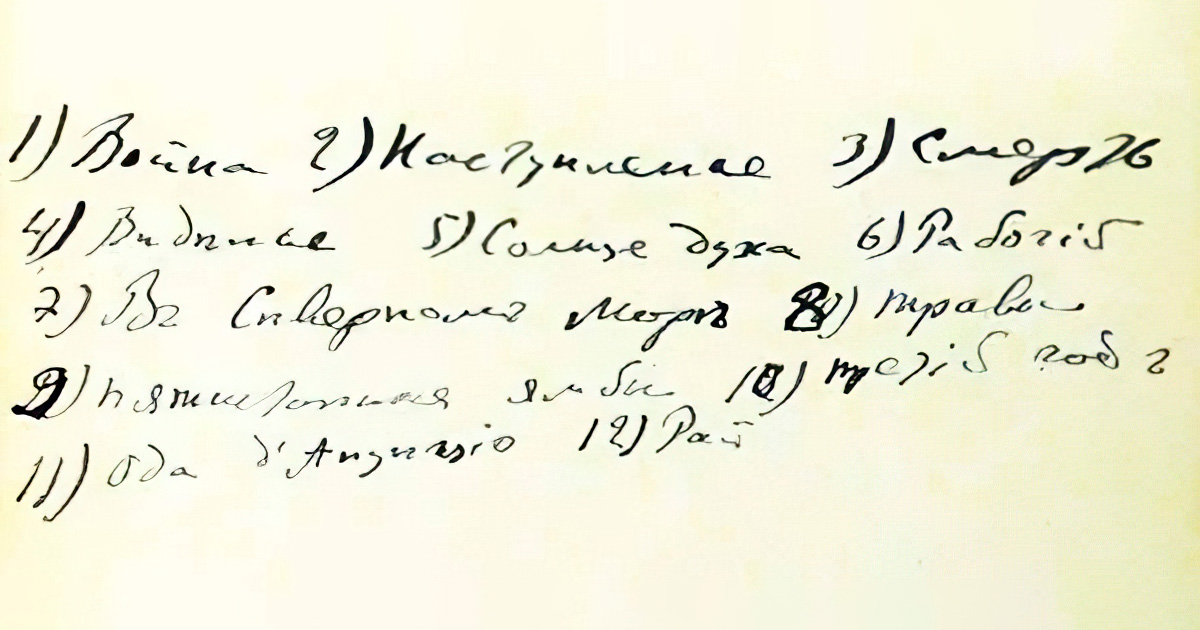 1) Война 2) Наступление 3) Смерть
4) Видѣнье 5) Солнце духа 6) Рабочій
7) Въ Сѣверномъ морѣ 8) травы
9) пятистопные ямбы 10) третій год
11) Ода д'Анунзіо 12) Рай